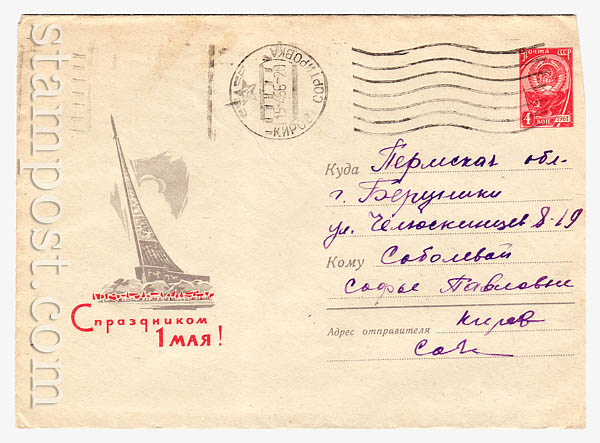 stampost.com
КИРОВ СОРТИРОВКА
Почта СССР
4 КОП 1961
Куда Пермская обл-
г. Березники
ул. Челюскинцев 8-19
Кому Соболевой
Софье Павловне
Адрес отправителя Киров
С праздником
1 МАЯ!